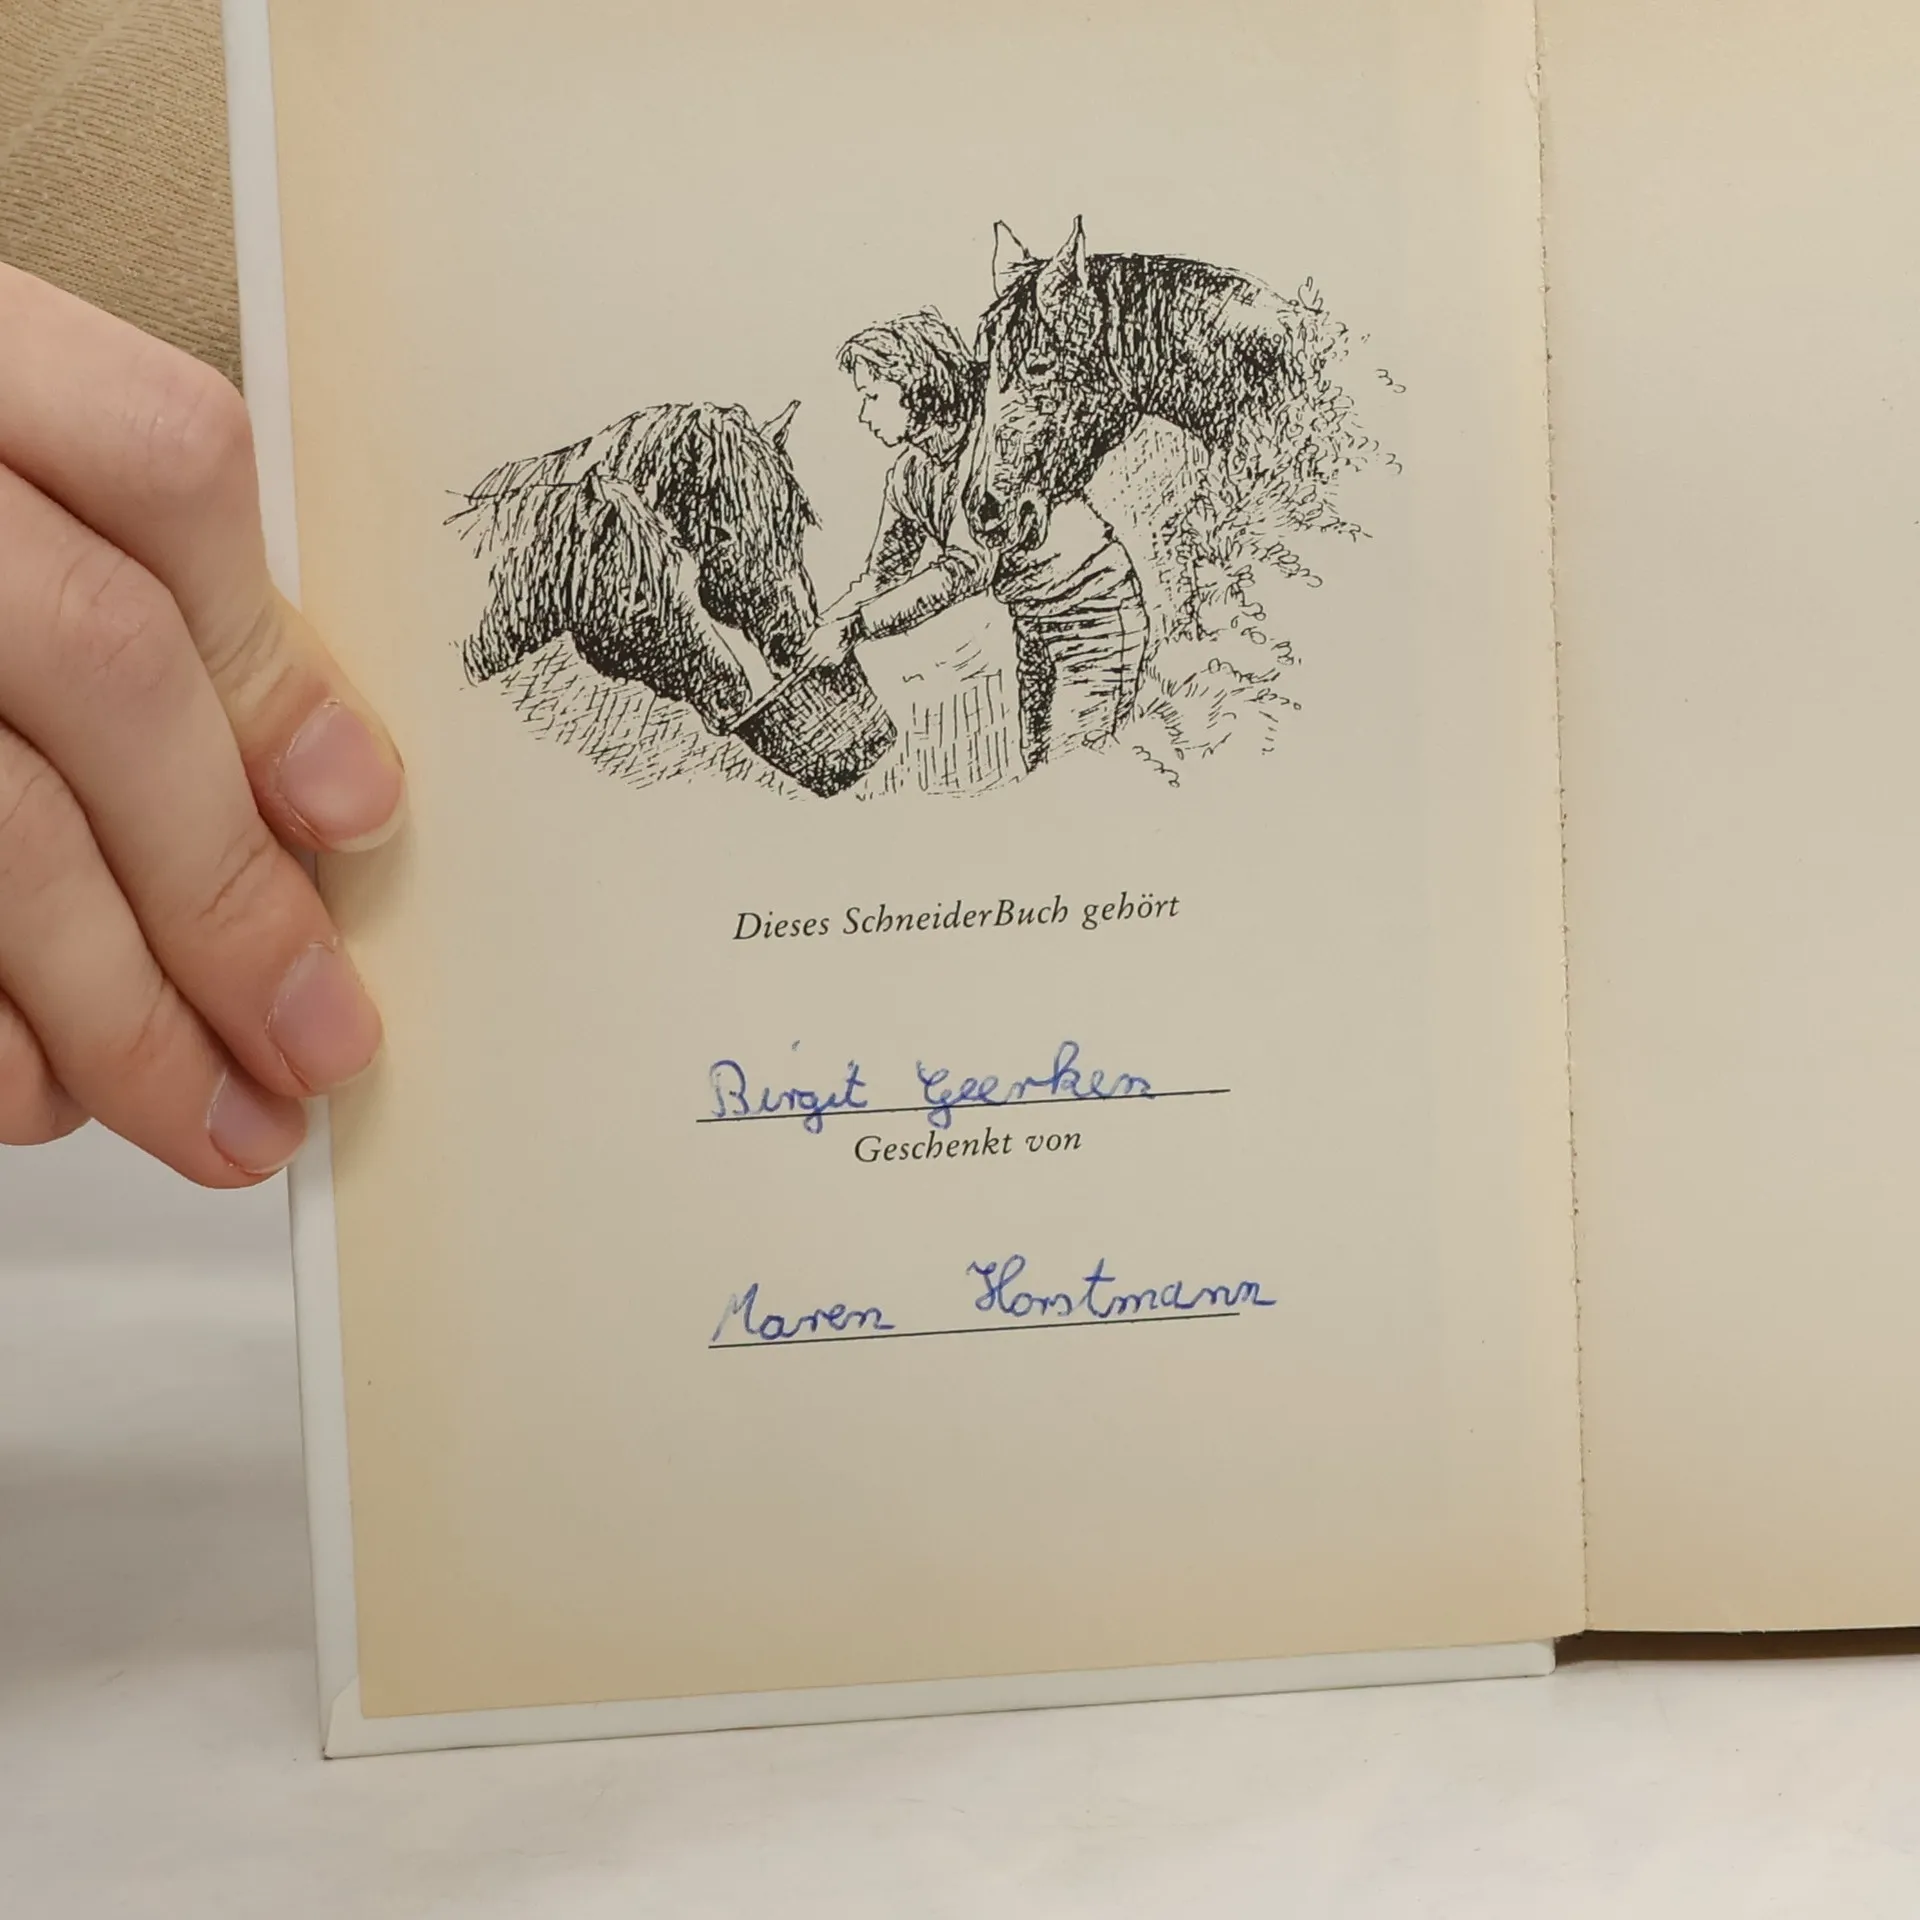 Dieses SchneiderBuch gehört
Birgit Geerken
Geschenkt von
Maren Horstmann